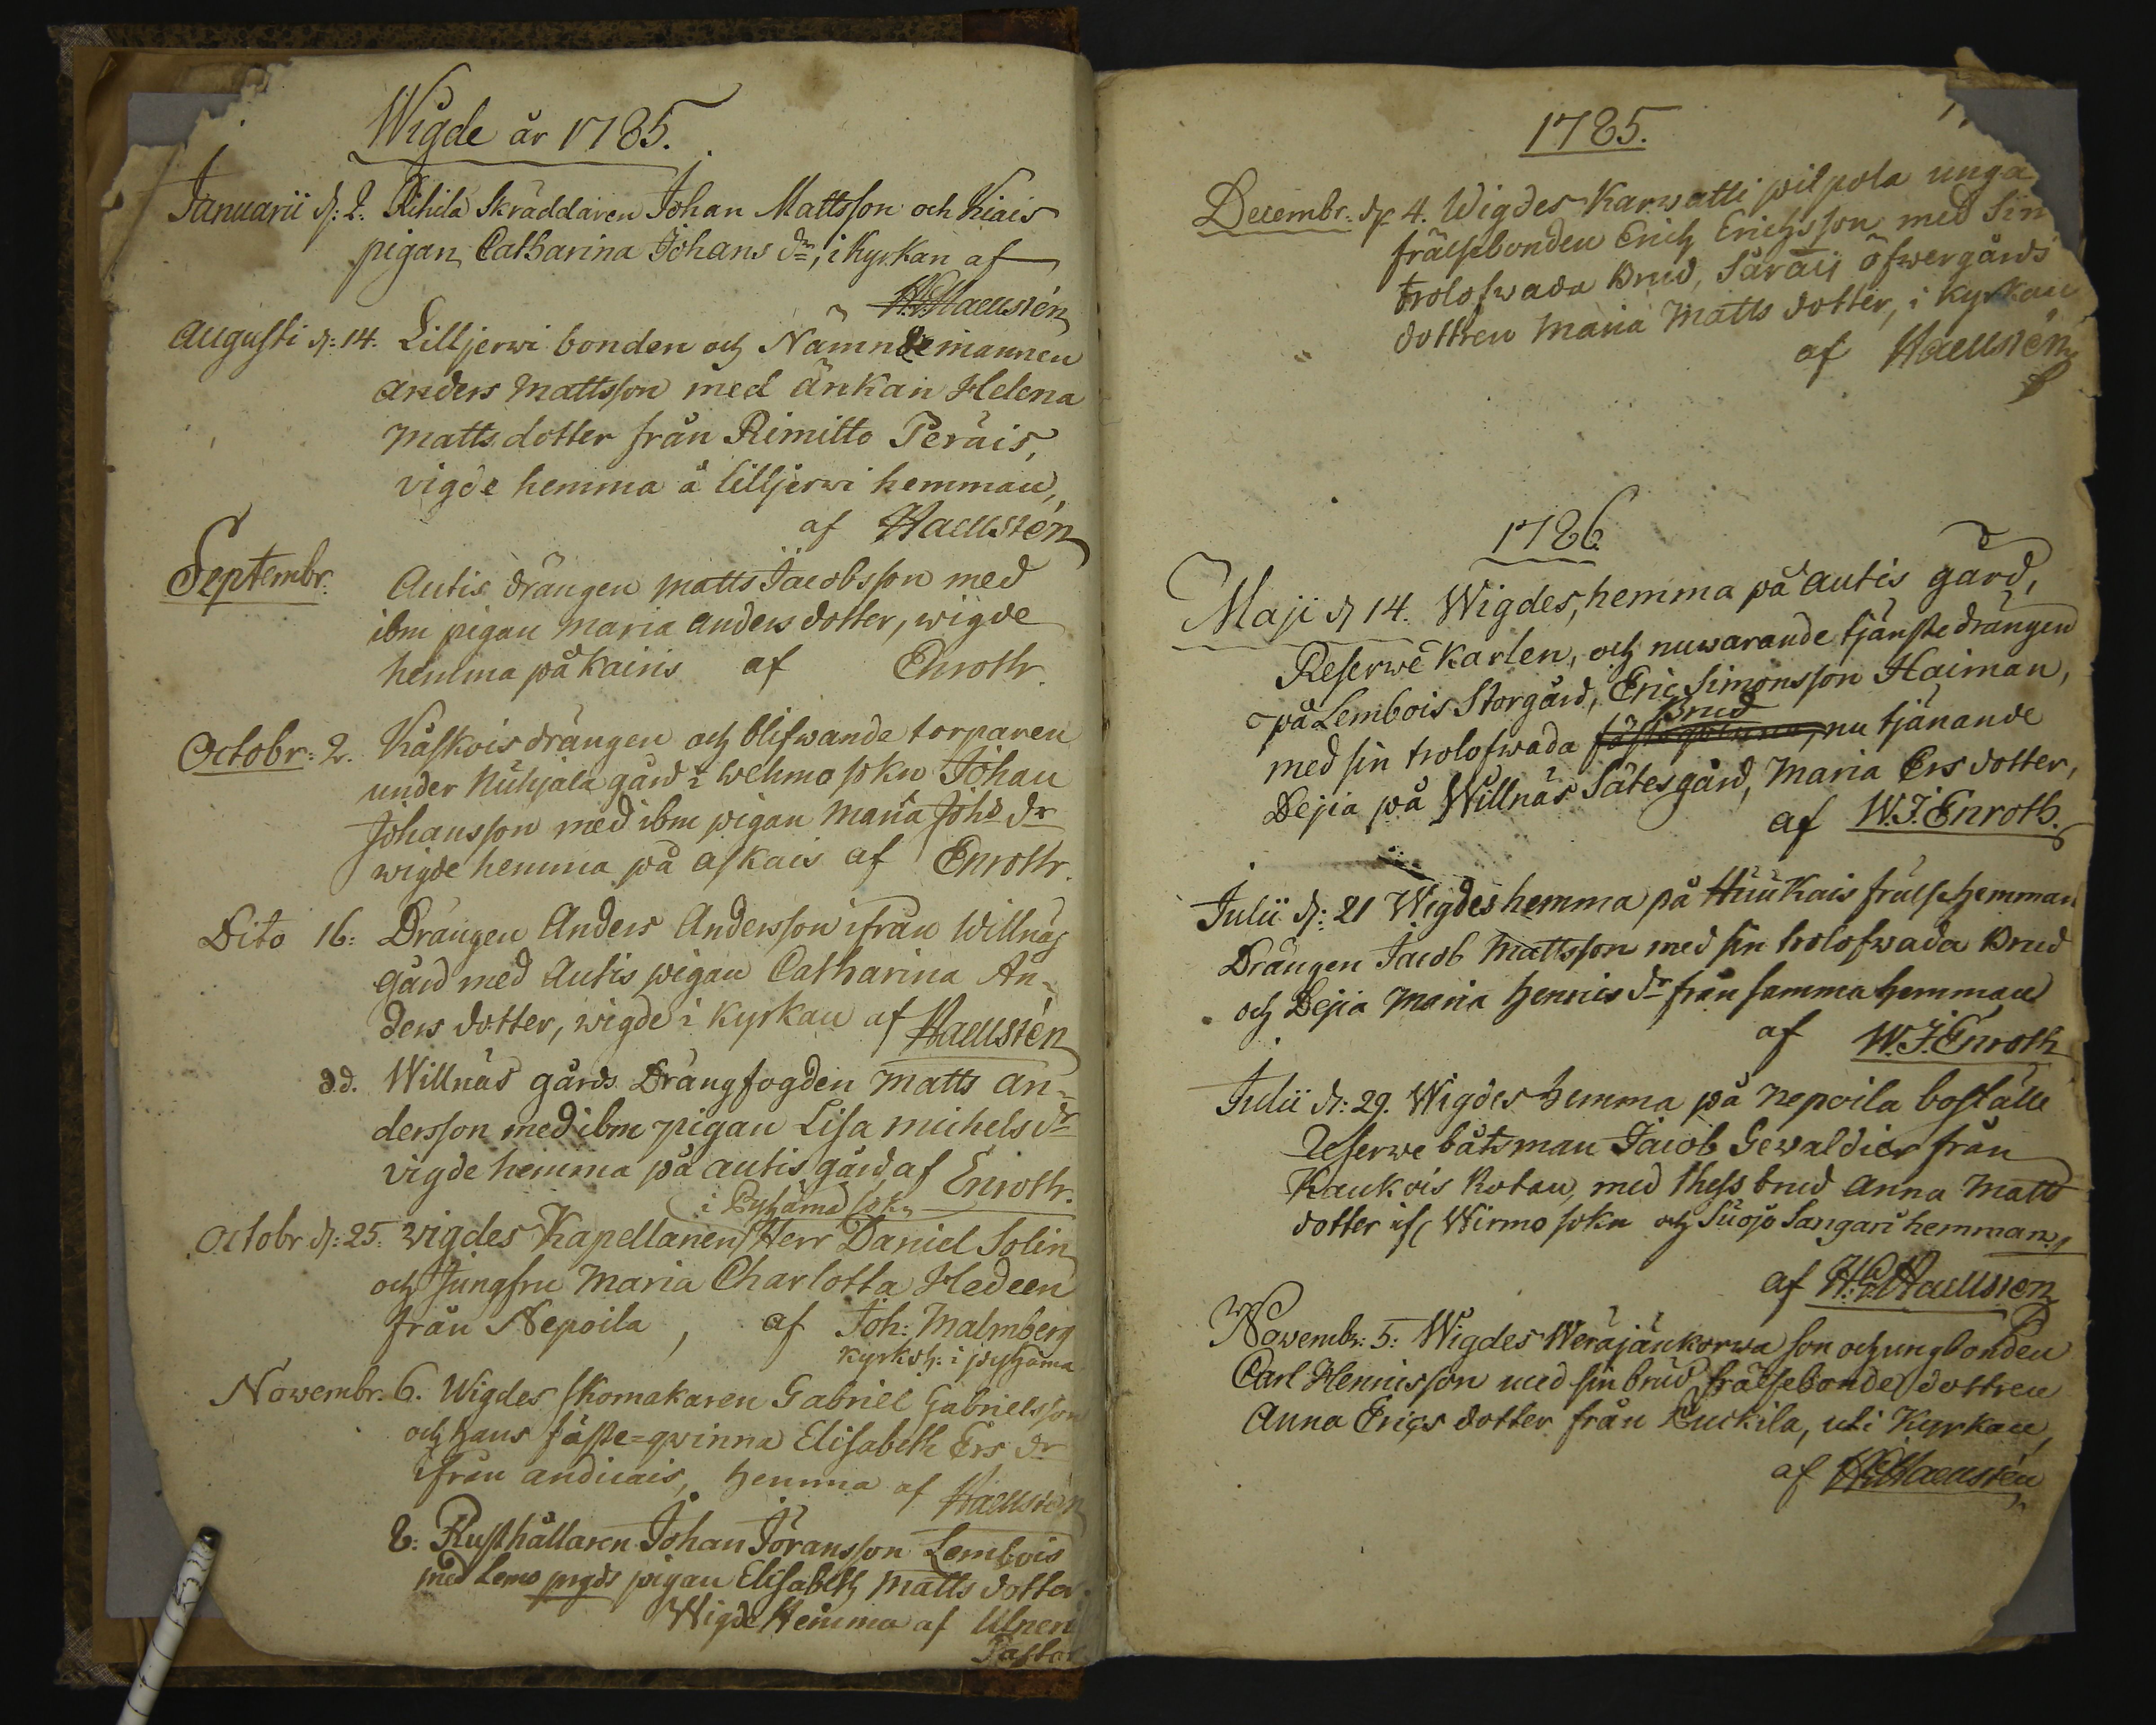 Wigde år 1785.
Januarii d: 2. Rihila Skräddaren Johan Mattsson och Kiais
pigan Catharina Johans dr, i Kyrkan af
Haellstén
Augusti d: 14. Lilljerwi bonden och Nämndemannen
Anders Mattsson med änkan Helena
Matts dotter från Rimitto Peräis,
vigde hemma å Lilljerwi hemman,
af Haellstén
Septembr. Autis drängen Matts Jacobsson med
ibm pigan Maria Anders dotter, wigde
hemma på Kairis af Enroth.
Octobr: 2. Kåskois drängen och blifwande torparen
under Nuhjala gård i Wehmo sokn Johan
Johansson med ibm pigan Maria Johs dr
wigde hemma på Askais af Enroth.
Dito 16: Drängen Anders Andersson ifrån Willnäs
gård med Autis pigan Catharina An-
ders dotter, wigde i Kyrkan af Haellstén
dd. Willnäs gårds Drängfogden Matts An-
dersson med ibm pigan Lisa Michels dr
vigde hemma på Autis gård af Enroth.
i Pyhämä sokn
Octobr d: 25. wigdes Kapellanen Herr Daniel Solin
och Jungfru Maria Charlotta Hedeen
från Nepoila, af Joh: Malmberg
Kyrkoh: i Pyhäma
Novembr. 6. Wigdes skomakaren Gabriel Gabrielsson
och hans fäste=qvinna Elisabeth Ers dr
ifrån Andicais, hemma af Haellstén
8: Rusthållaren Johan Jöransson Lembois
med Lemo prgds pigan Elisabeth Matts dotter
Wigde Hemma af Ulnen
Pastor
1785.
Decembr. d. 4. Wigdes Karwatti pilpola unga
frälsebonden Erich Erichsson med Sin
trolofwada Brud, Säräis öfwergårds
dottren Maria Matts dotter, i Kyrkan
af Haellstén
1786.
Maji d 14. Wigdes, hemma på Autis gård,
Reserwe Karlen, och nuwarande tjänstedrängen
på Lembois Storgård, Eric Simonsson Haiman,
Brud
med sin trolofwada fästeqwinna, nu tjänande
Dejia på Willnäs Sätesgård, Maria Ers dotter,
af W.J. Enroth.
Julii d: 21 Wigdes hemma på Huukais frälsehemman
Drängen Jacob Mattsson med sin trolofwada Brud
och Dejia Maria Henrics dr från samma hemman
af W.J. Enroth
Julii d: 29. Wigdes hemma på Nepoila boställe
Reserwe båtsman Jacob Gewaldier från
Kaukois Rotan, med thess brud Anna Matts
dotter uti Wirmo sokn och Suojo Sangari hemman,
af Haellstén
Novembr: 5: Wigdes Weräjänkorwa son och ungbonden
Carl Henricsson med sin brud frälsebonde dottren
Anna Erics dotter från Ruckila, uti Kyrkan,
af Haellstén